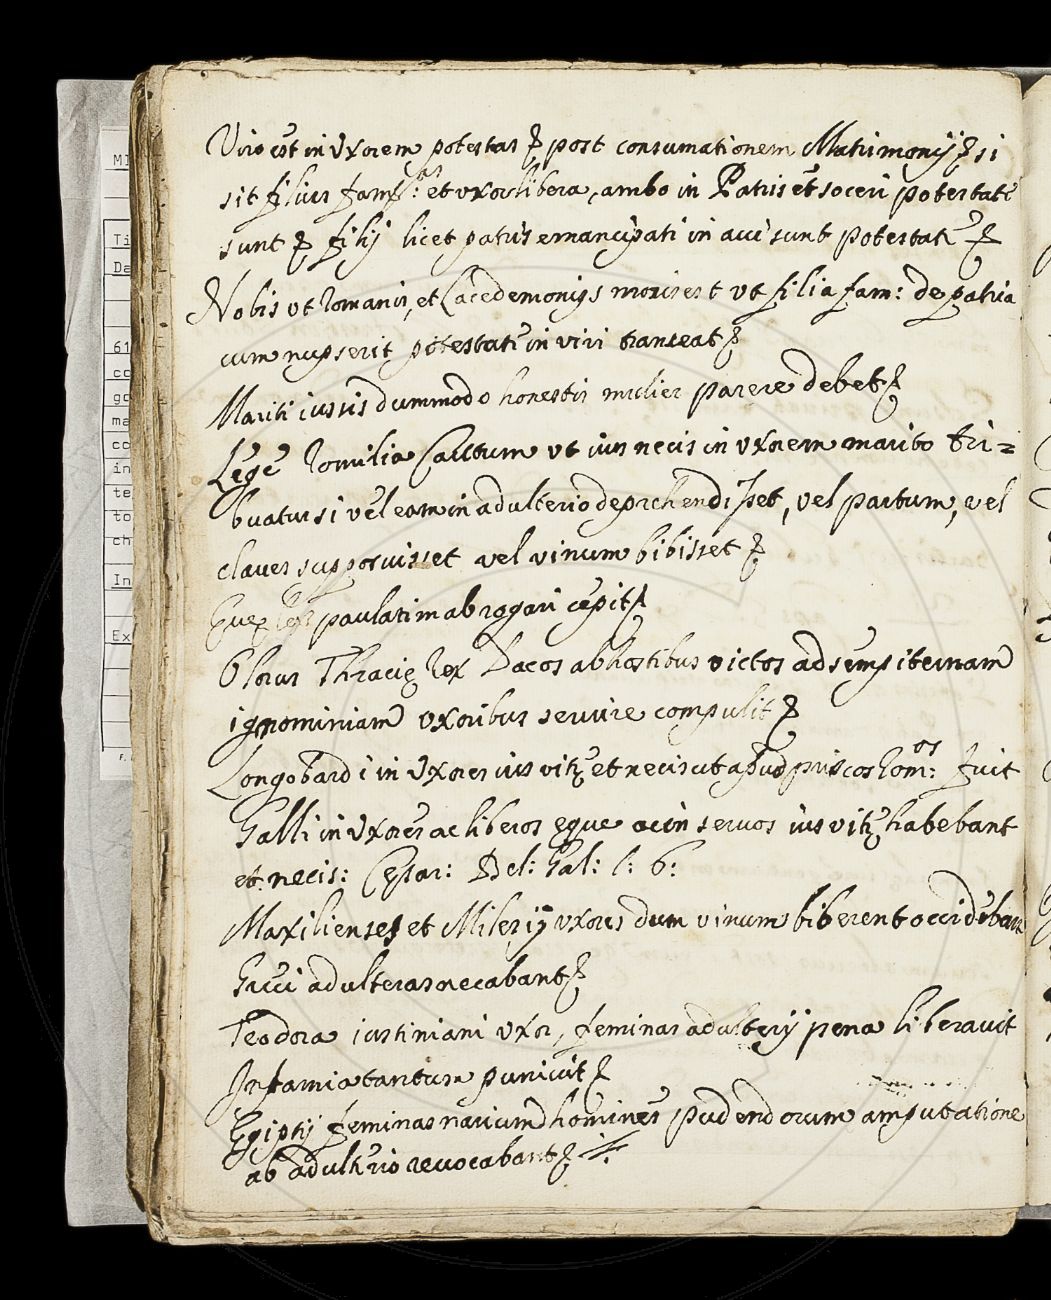 Viro est in Vxorem potestas post consumationem Matrimonij si
sit filius fam: as et vxor libera, ambo in Patris et soceri potestate
sunt filij licet patris emancipati in aui sunt potestate
Nobis ut romanis, et Lacedemonijs moris est ut filia fam: de patria
cum nupserit potestate in viri transeat
Mariti iussis dummodo honestis mulier parere debet
Lege romilia Cautum ut ius necis in vxorem marito tri=
buatur si vel eam in adulterio deprehendisset, vel partum, vel
claues supposuisset vel vinum bibisset
paulatim abrogari cepit
Olorus Thracię rex Dacos ab hostibus victos ad sempiternam
ignominiam vxoribus seruire compulit
Longobardi in Vxores ius vitę et necis ut apud priscos rom: os fuit
Galli in Vxores ac liberos eque ac in seruos ius vitę habebant
et necis: Cesar: Bel: Gal: l: 6:
Maxilienses et Milesij vxores dum vinum biberent occidebant
adulteras necabant
Teodora iustiniani vxor, feminas adulterij pena liberauit
Infamia tantum puniuit
Egiptij feminas narium homines pudendorum amputatione
ab adulterio reuocabant
MI
Ti
Da
61
cc
go
ma
cc
in
te
to
ch
In
Ex